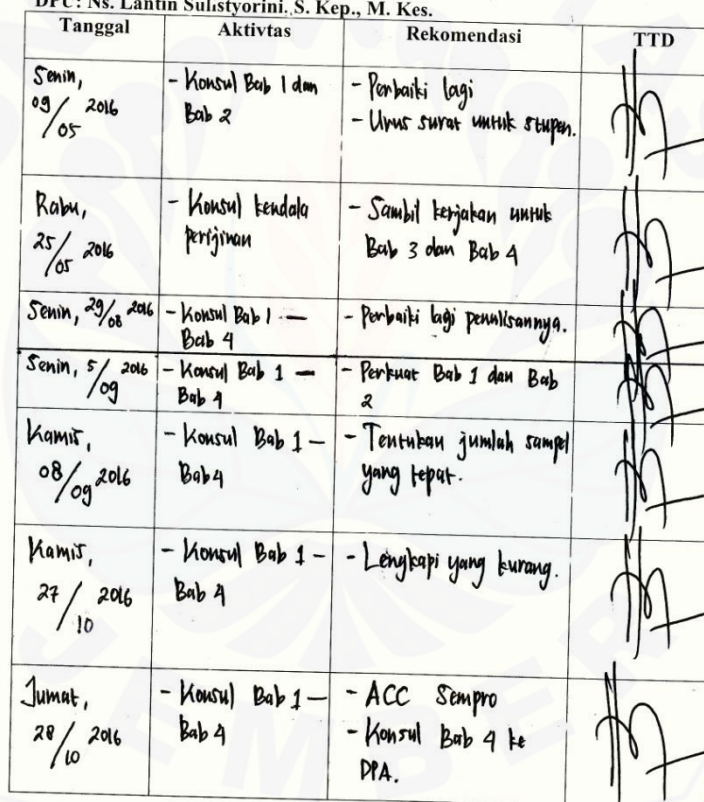 DPU: Ns. Lantin Sulistyorini, S. Kep., M. Kes.
Tanggal Aktivtas Rekomendasi TTD
Senin, 09/05 2016
- Konsul Bab 1 dan
Bab 2
- Perbaiki lagi
- Urus surat untuk stupen.
Rabu,
25/05 2016
- Konsul kendala
perijinan
- Sambil kerjakan untuk
Bab 3 dan Bab 4
Senin, 29/08 2016
- Konsul Bab 1 —
Bab 4
- Perbaiki lagi penulisannya.
Senin, 5/09 2016
- Konsul Bab 1 —
Bab 4
- Perkuat Bab 1 dan Bab
2
Kamis,
08/09 2016
- Konsul Bab 1 –
Bab 4
- Tentukan jumlah sampel
yang tepat.
Kamis,
27/10 2016
- Konsul Bab 1 –
Bab 4
- Lengkapi yang kurang.
Jumat,
28/10 2016
- Konsul Bab 1 –
Bab 4
- ACC Sempro
- Konsul Bab 4 ke
DPA.
JEMBER